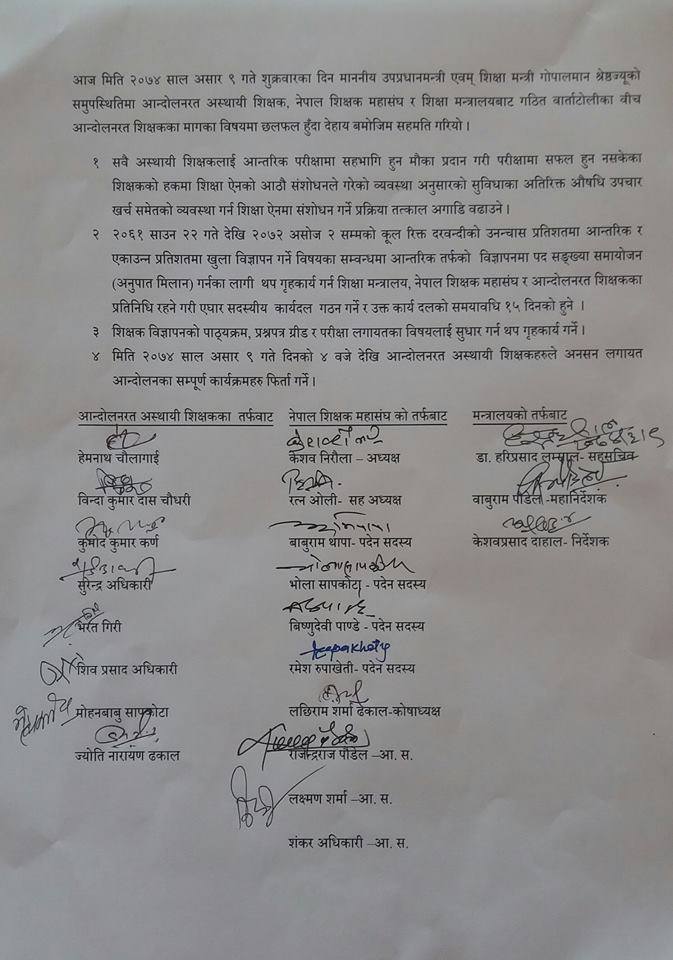 आज मिति २०७४ साल असार ९ गते शुक्रवारका दिन माननीय उपप्रधानमन्त्री एवम् शिक्षा मन्त्री गोपालमान श्रेष्ठज्यूको
समुपस्थितिमा आन्दोलनरत अस्थायी शिक्षक, नेपाल शिक्षक महासंघ र शिक्षा मन्त्रालयबाट गठित वार्ताटोलीका वीच
आन्दोलनरत शिक्षकका मागका विषयमा छलफल हुँदा देहाय बमोजिम सहमति गरियो ।
१ सवै अस्थायी शिक्षकलाई आन्तरिक परीक्षामा सहभागि हुन मौका प्रदान गरी परीक्षामा सफल हुन नसकेका
शिक्षकको हकमा शिक्षा ऐनको आठौ संशोधनले गरेको व्यवस्था अनुसारको सुविधाका अतिरिक्त औषधि उपचार
खर्च समेतको व्यवस्था गर्न शिक्षा ऐनमा संशोधन गर्ने प्रक्रिया तत्काल अगाडि वढाउने ।
२ २०६१ साउन २२ गते देखि २०७२ असोज २ सम्मको कूल रिक्त दरवन्दीको उनन्चास प्रतिशतमा आन्तरिक र
एकाउन्न प्रतिशतमा खुला विज्ञापन गर्ने विषयका सम्वन्धमा आन्तरिक तर्फको विज्ञापनमा पद सङ्ख्या समायोजन
(अनुपात मिलान) गर्नका लागी थप गृहकार्य गर्न शिक्षा मन्त्रालय, नेपाल शिक्षक महासंघ र आन्दोलनरत शिक्षकका
प्रतिनिधि रहने गरी एघार सदस्यीय कार्यदल गठन गर्ने र उक्त कार्य दलको समयावधि १५ दिनको हुने ।
३ शिक्षक विज्ञापनको पाठ्यक्रम, प्रश्नपत्र ग्रीड र परीक्षा लगायतका विषयलाई सुधार गर्न थप गृहकार्य गर्ने ।
४ मिति २०७४ साल असार ९ गते दिनको ४ वजे देखि आन्दोलनरत अस्थायी शिक्षकहरुले अनसन लगायत
आन्दोलनका सम्पूर्ण कार्यक्रमहरु फिर्ता गर्ने ।
आन्दोलनरत अस्थायी शिक्षकका तर्फवाट
हेमनाथ चौलागाई
विन्दा कुमार दास चौधरी
कुमोद कुमार कर्ण
सुरेन्द्र अधिकारी
भरत गिरी
शिव प्रसाद अधिकारी
मोहनबाबु सापकोटा
ज्योति नारायण ढकाल
नेपाल शिक्षक महासंघ को तर्फबाट
केशव निरौला – अध्यक्ष
रत्न ओली- सह अध्यक्ष
बाबुराम थापा- पदेन सदस्य
भोला सापकोटा - पदेन सदस्य
बिष्णुदेवी पाण्डे - पदेन सदस्य
रमेश रुपाखेती- पदेन सदस्य
लछिराम शर्मा ढकाल-कोषाध्यक्ष
राजेन्द्रराज पौडेल –आ. स.
लक्ष्मण शर्मा –आ. स.
शंकर अधिकारी –आ. स.
मन्त्रालयको तर्फबाट
डा. हरिप्रसाद लम्साल- सहसचिव
वाबुराम पौडेल -महानिर्देशक
केशवप्रसाद दाहाल- निर्देशक